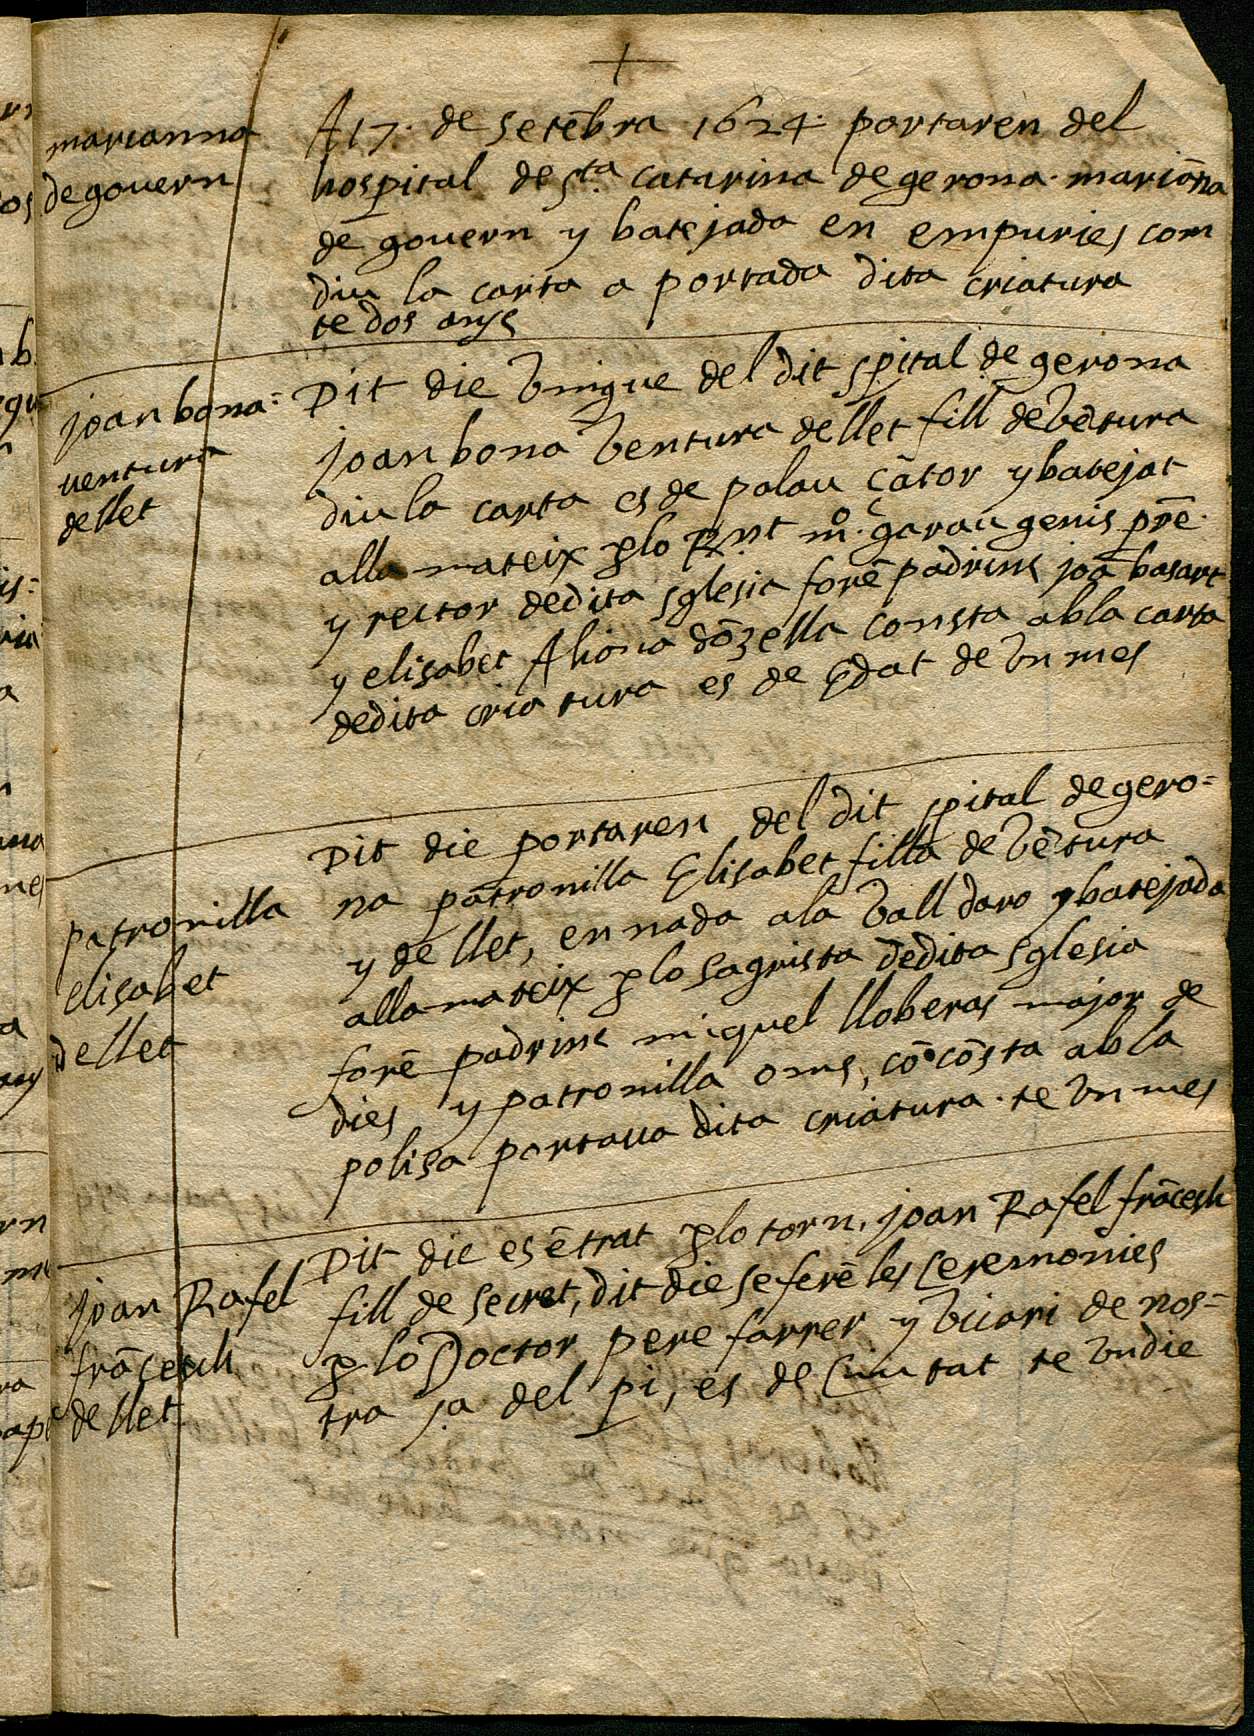 marianna
de govern
A 17. de setēbra 1624. portaren del
hospital de Sta. catarina de gerona. mariāna
de govern y batejada en empuries com
diu la carta a portada dita criatura
te dos anys
joan bona=
ventura
de llet
Dit die vingue del dit spital de gerona
joan bona ventura de llet fill de vētura
diu la carta es de palau çātor y batejat
alla mateix plo Rnt mº. garau genis prē.
y rector de dita sglesia forē padrins joā basart
y elisabet Aliona dōzella consta ab la carta
de dita criatura es de Edat de un mes
patronilla
elisabet
de llet
Dit die portaren del dit spital de gero=
na patronilla Elisabet filla de vētura
y de llet, en nada a la vall daro y batejada
alla mateix plo sagrista de dita sglesia
forē padrins miquel lloberas major de
dies y patronilla oms, cō cōsta ab la
polisa portava dita criatura. te un mes
joan Rafel
frācesch
de llet
Dit die es ētrat plo torn, joan Rafel frācesch
fill de secret, dit die se ferē les ceremonies
plo Doctor pere farrer y vicari de nos=
tra sa. del pi, es de Ciutat te un die